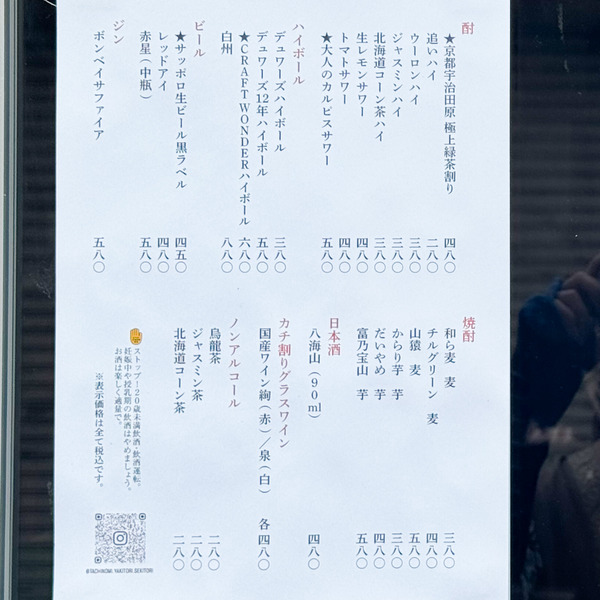 酎
★京都宇治田原 極上緑茶割り 四八〇
追いハイ 二八〇
ウーロンハイ 三八〇
ジャスミンハイ 三八〇
北海道コーン茶ハイ 三八〇
生レモンサワー 四八〇
トマトサワー 四八〇
★大人のカルピスサワー 五八〇
ハイボール
デュワーズハイボール 三八〇
デュワーズ12年ハイボール 五八〇
★CRAFT WONDERハイボール 六八〇
白州 八八〇
ビール
★サッポロ生ビール黒ラベル 四五〇
レッドアイ 四八〇
赤星(中瓶) 五八〇
ジン
ボンベイサファイア 五八〇
焼酎
和ら麦 麦 三八〇
チルグリーン 麦 四八〇
山猿 麦 五八〇
からり芋 芋 三八〇
だいやめ 芋 四八〇
富乃宝山 芋 五八〇
日本酒
八海山(90ml) 四八〇
カチ割りグラスワイン
国産ワイン絢(赤)/泉(白) 各四八〇
ノンアルコール
烏龍茶 二八〇
ジャスミン茶 二八〇
北海道コーン茶 二八〇
ストップ!20歳未満飲酒・飲酒運転。
妊娠中や授乳期の飲酒はやめましょう。
お酒は楽しく適量で。
※表示価格は全て税込です。
@TACHINOMI.YAKITORI.SEKITORI